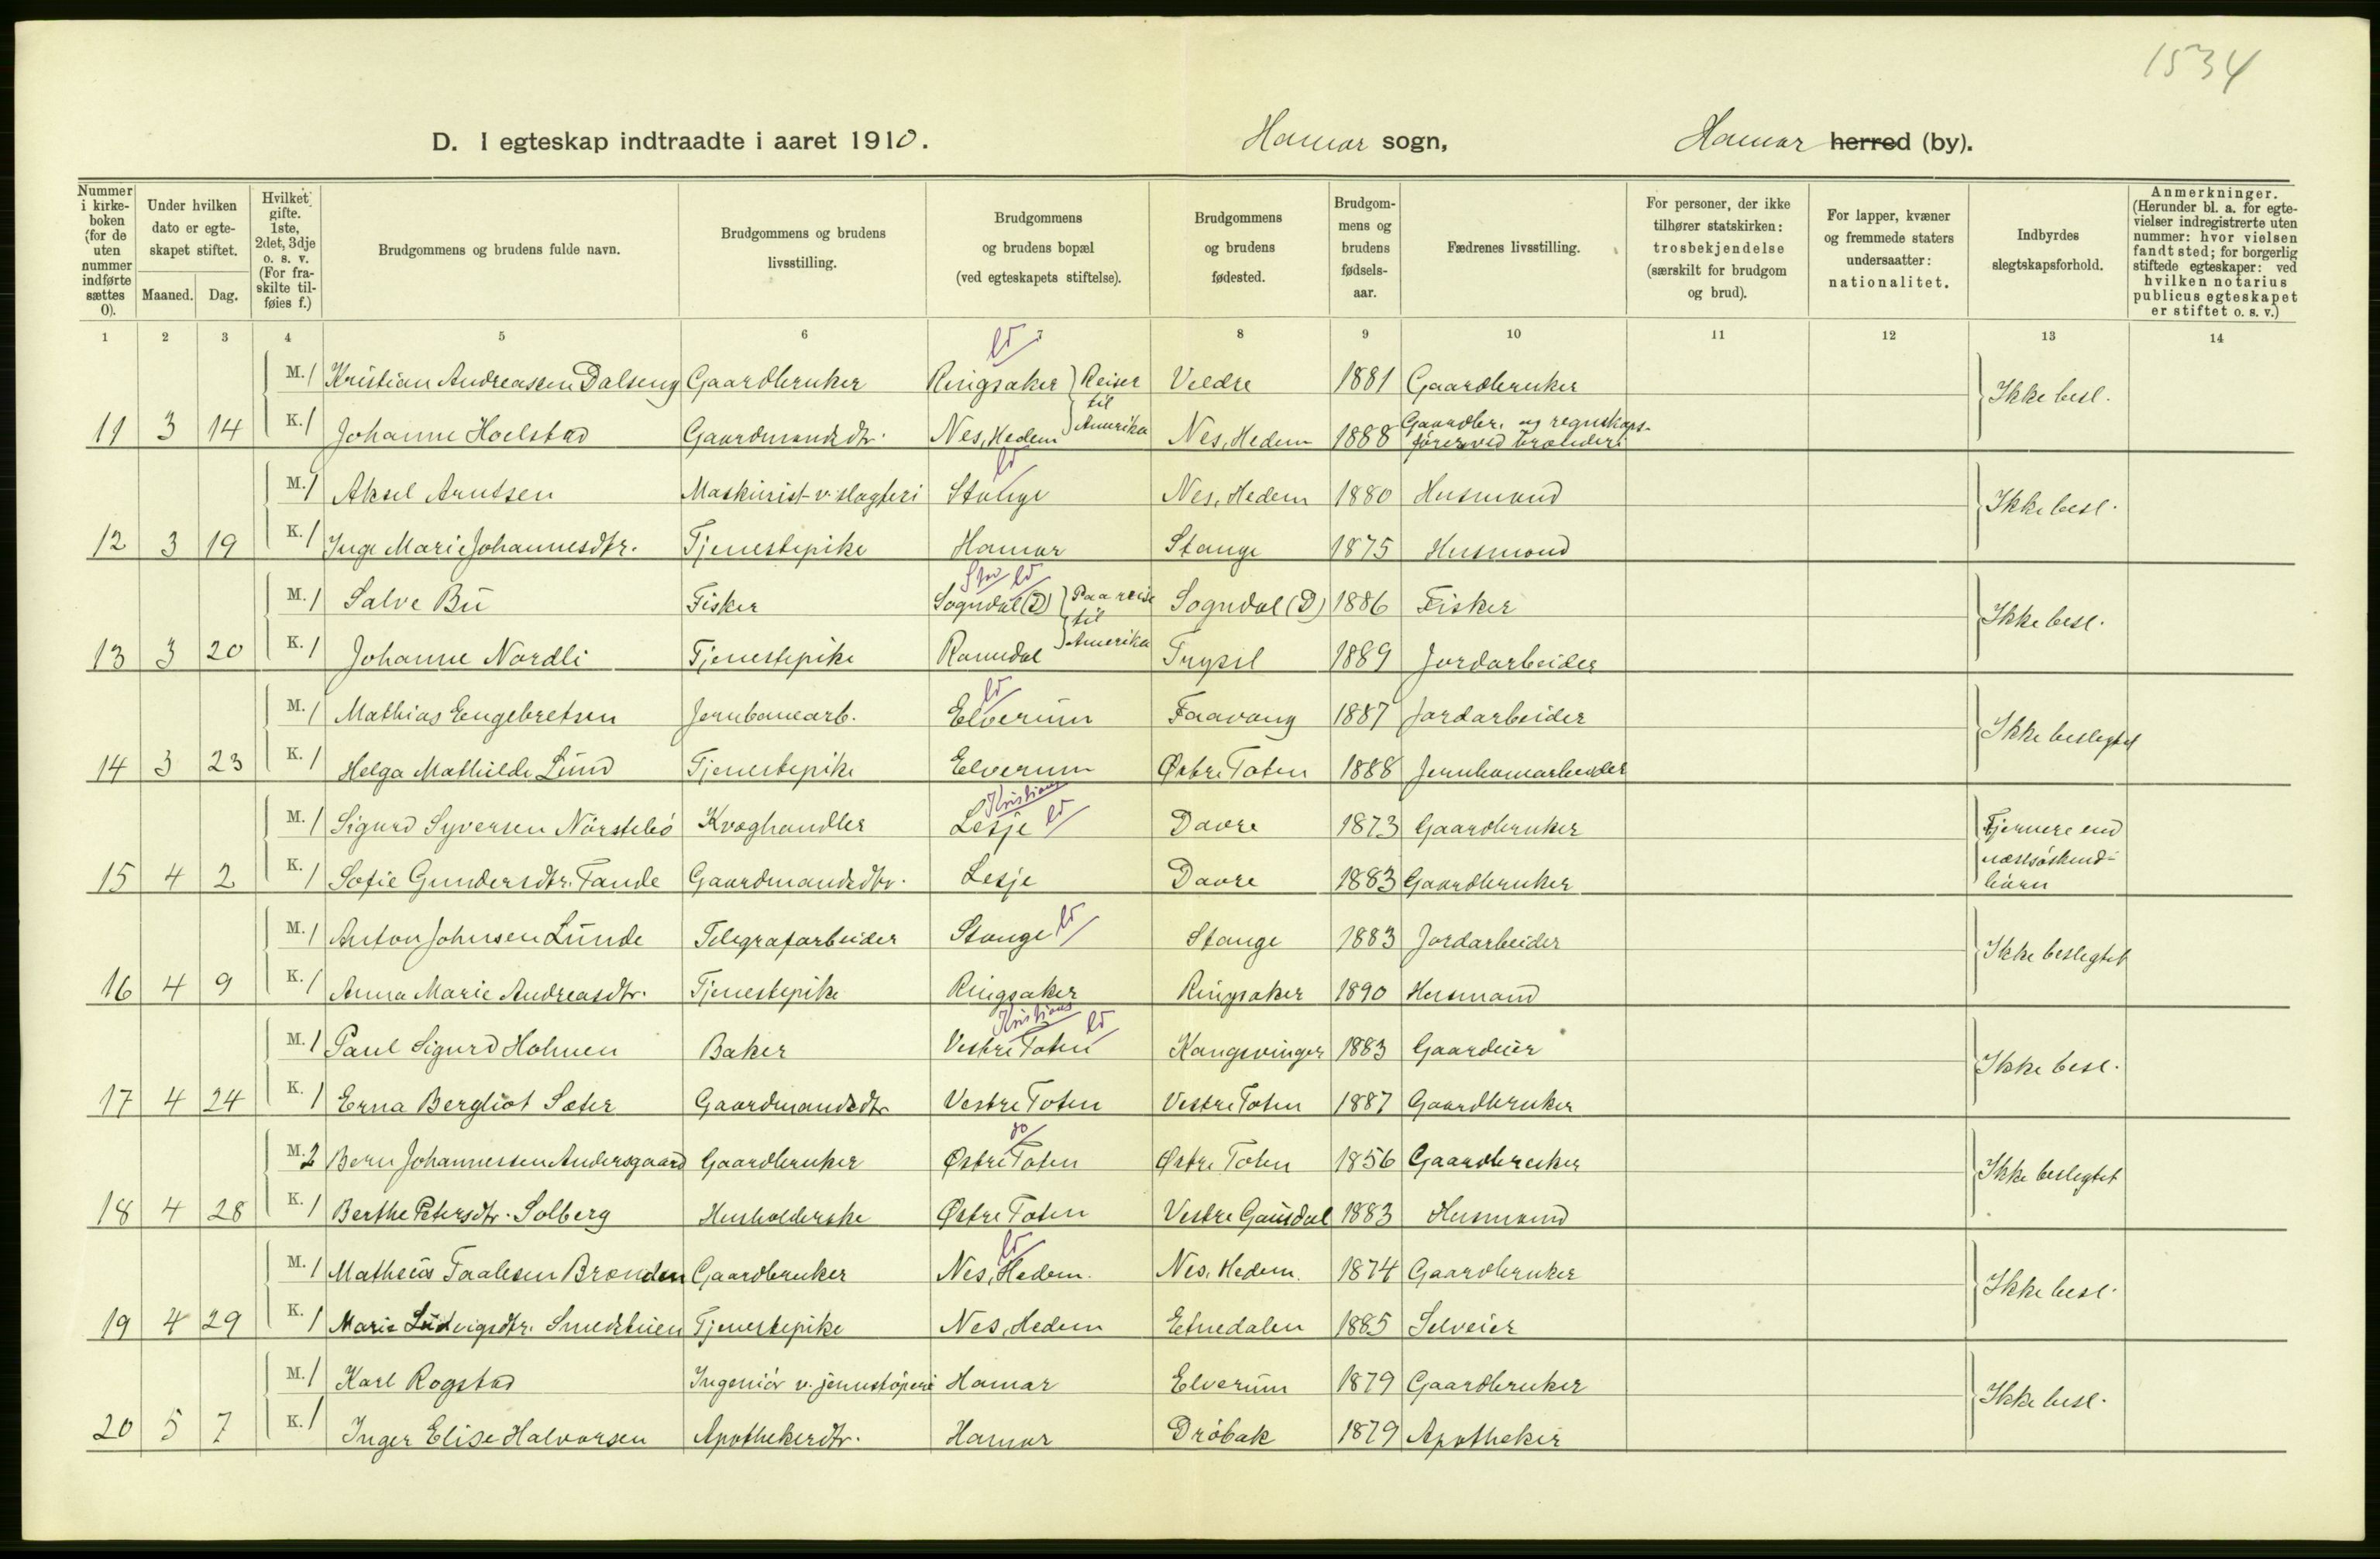 1534
D. I egteskap indtraadte i aaret 1910. Hamar sogn, Hamar herred (by).
Nummer i kirkeboken (for de uten nummer indførte sættes 0). | Under hvilken dato er egteskapet stiftet. Maaned. Dag. | Hvilket gifte. 1ste, 2det, 3dje o. s. v. (For fraskilte tilføies f.) | Brudgommens og brudens fulde navn. | Brudgommens og brudens livsstilling. | Brudgommens og brudens bopæl (ved egteskapets stiftelse). | Brudgommens og brudens fødested. | Brudgommens og brudens fødselsaar. | Fædrenes livsstilling. | For personer, der ikke tilhører statskirken: trosbekjendelse (særskilt for brudgom og brud). | For lapper, kvæner og fremmede staters undersaatter: nationalitet. | Indbyrdes slegtskapsforhold. | Anmerkninger. (Herunder bl. a. for egtevielser indregistrerte uten nummer: hvor vielsen fandt sted; for borgerlig stiftede egteskaper: ved hvilken notarius publicus egteskapet er stiftet o. s. v.)
1 2 3 4 5 6 7 8 9 10 11 12 13 14
M. 1 Kristian Andreassen Dalseng Gaardbruker Ringsaker } Reiser Veldre 1881 Gaardbruker
til Ikke besl.
11 3 14 K. 1 Johanne Hoelstad Gaardmandsdtr. Nes, Hedem Amerika Nes, Hedem 1888 Gaardbr. og regnskapsfører ved brænderi
M. 1 Aksel Arntsen Maskinist v. slagteri Stange Nes, Hedem 1880 Husmand
Ikke besl.
12 3 19 K. 1 Inge Marie Johannesdtr. Tjenestepike Hamar Stange 1875 Husmand
M. 1 Salve Bü Fisker Sogndal (D) } Paa reise Sogndal (D) 1886 Fisker
til Ikke besl.
13 3 20 K. 1 Johanne Nordli Tjenestepike Romedal Amerika Trysil 1889 Jordarbeider
M. 1 Mathias Engebretsen Jernbanearb. Elverum Faavang 1887 Jordarbeider
Ikke beslegtet
14 3 23 K. 1 Helga Mathilde Lund Tjenestepike Elverum Østre Toten 1888 Jernbanearbeider
Kristians
M. 1 Sigurd Syversen Nørstebø Kvæghandler Lesje Dovre 1873 Gaardbruker Fjernere end
næstsøskend-
15 4 2 K. 1 Sofie Gundersdtr. Tande Gaardmandsdtr. Lesje Dovre 1883 Gaardbruker børn
M. 1 Anton Johnsen Lunde Telegrafarbeider Stange Stange 1883 Jordarbeider
Ikke beslegtet
16 4 9 K. 1 Anna Marie Andreasdtr. Tjenestepike Ringsaker Ringsaker 1890 Husmand
Kristians
M. 1 Paul Sigurd Holmen Baker Vestre Toten Kongsvinger 1883 Gaardeier
Ikke besl.
17 4 24 K. 1 Erna Bergliot Sæter Gaardmandsdtr Vestre Toten Vestre Toten 1887 Gaardbruker
M. 2 Bern Johannessen Andersgaard Gaardbruker Østre Toten Østre Toten 1856 Gaardbruker
Ikke beslegtet
18 4 28 K. 1 Berthe Petersdtr. Solberg Husholderske Østre Toten Vestre Gausdal 1883 Husmand
M. 1 Matheus Taalesen Brenden Gaardbruker Nes, Hedem. Nes, Hedem. 1874 Gaardbruker
Ikke besl.
19 4 29 K. 1 Marie Ludvigsdtr. Smedstuen Tjenestepike Nes, Hedem Etnedalen 1885 Selveier
M. 1 Karl Rogstad Ingeniør v. jernstøperi Hamar Elverum 1879 Gaardbruker
Ikke besl.
20 5 7 K. 1 Inger Elise Halvorsen Apothekerdtr. Hamar Drøbak 1879 Apotheker